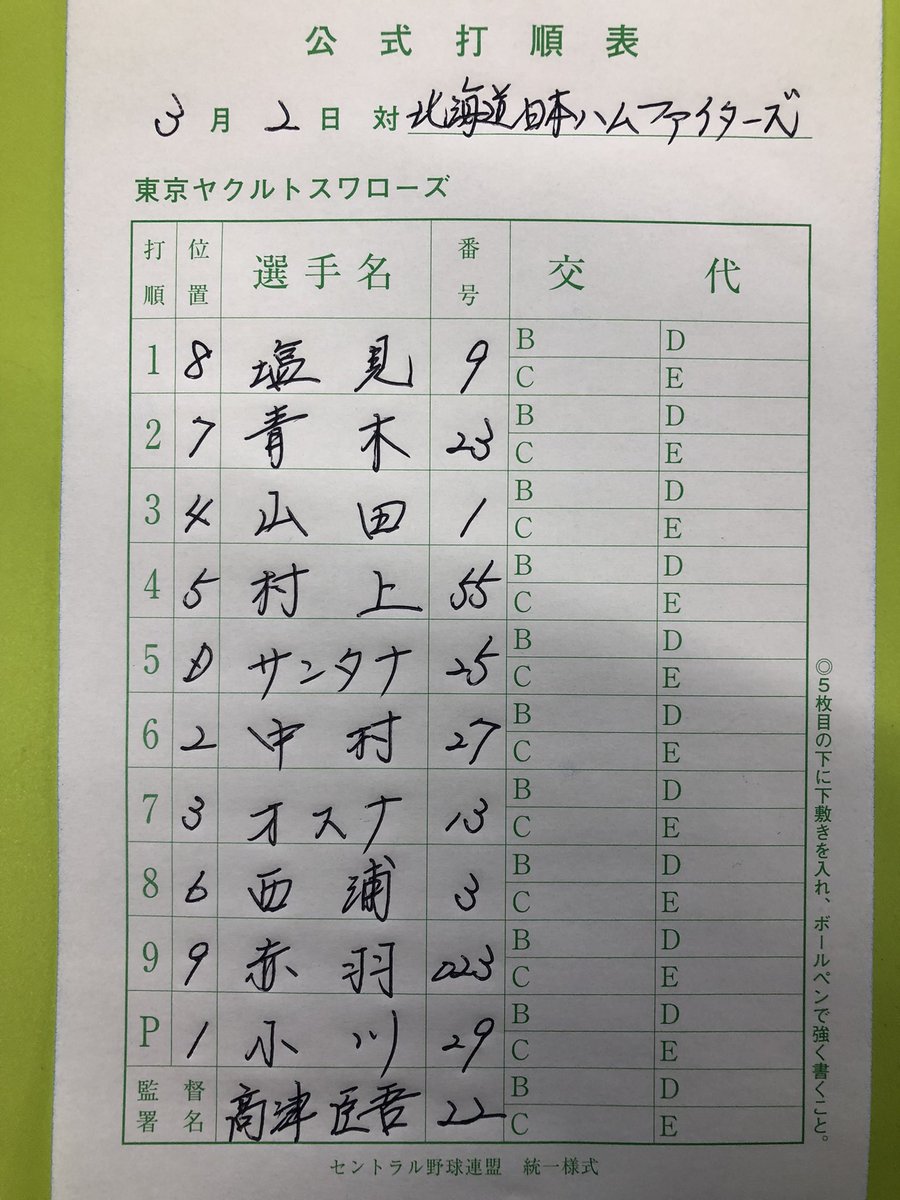 公式打順表
3月2日 対 北海道日本ハムファイターズ
東京ヤクルトスワローズ
打順 位置 選手名 番号 交代
1 8 塩見 9 B D
C E
2 7 青木 23 B D
C E
3 4 山田 1 B D
C E
4 5 村上 55 B D
C E
5 D サンタナ 25 B D
C E
6 2 中村 27 B D
C E
7 3 オスナ 13 B D
C E
8 6 西浦 3 B D
C E
9 9 赤羽 023 B D
C E
P 1 小川 29 B D
C E
監督署名 高津臣吾 22 B D
C E
◎5枚目の下に下敷きを入れ、ボールペンで強く書くこと。
セントラル野球連盟 統一様式